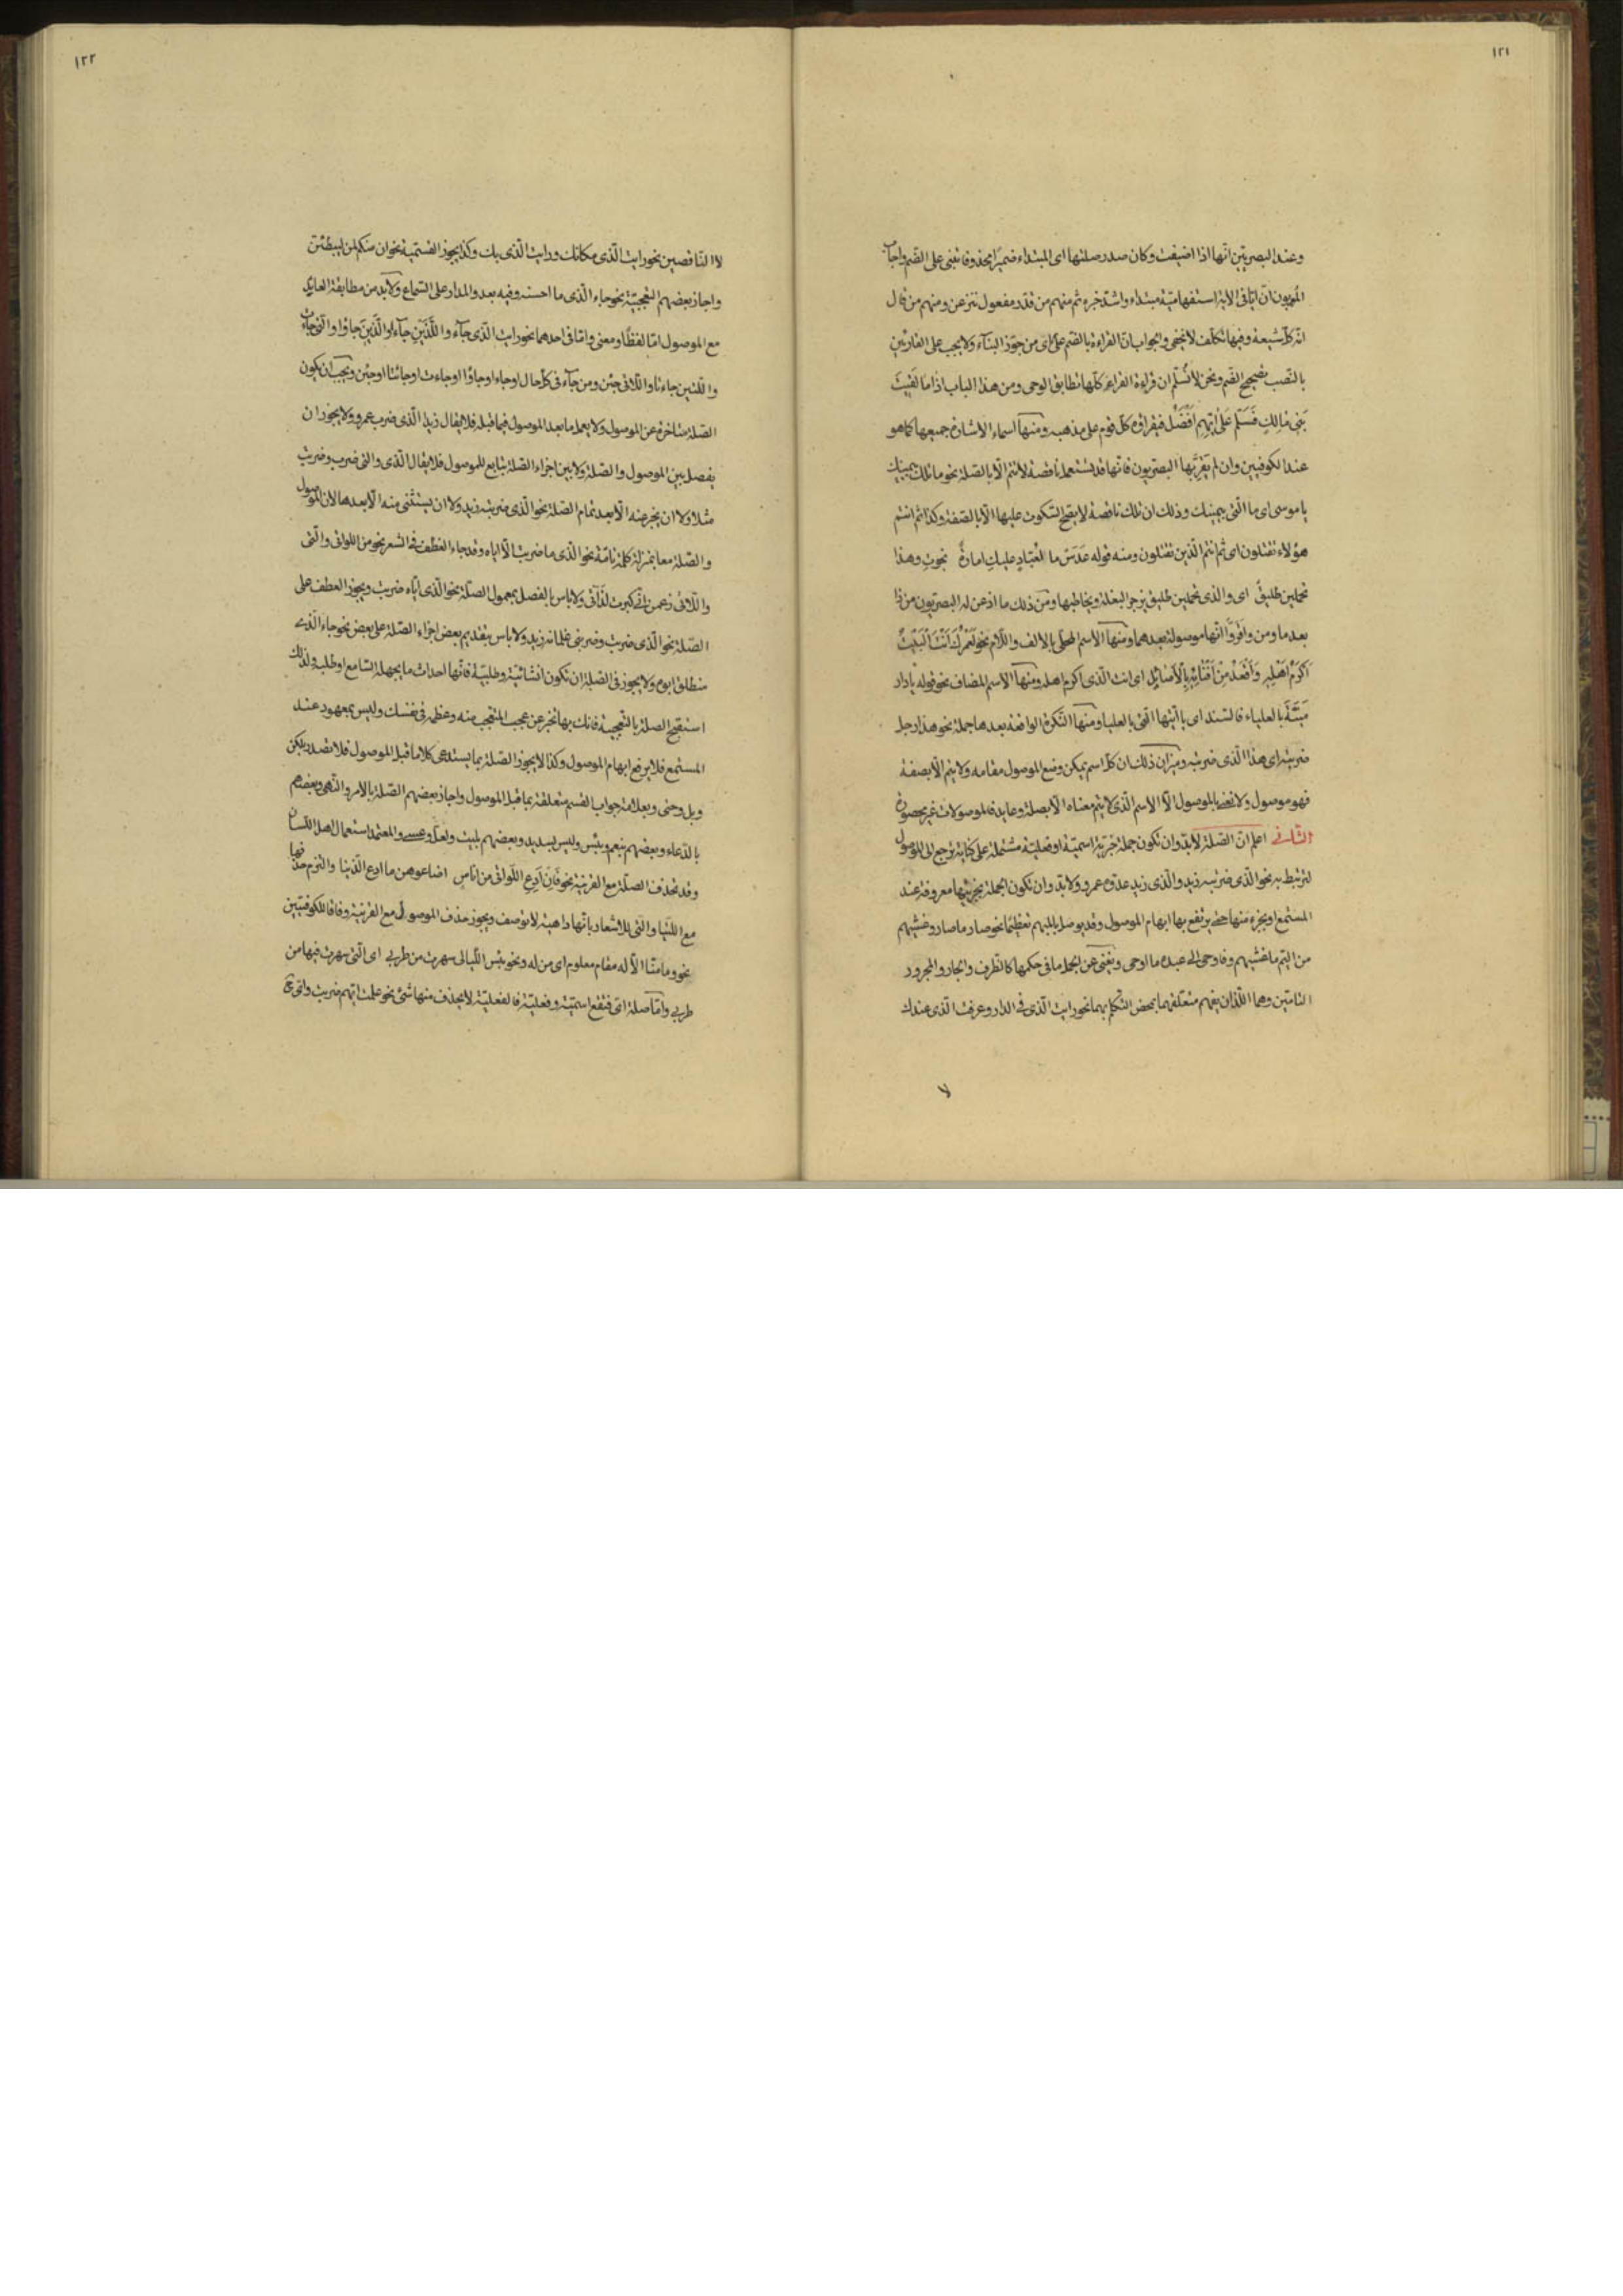 ١٢١
وعند البصريين انها اذا اضيفت وكان صدر صلتها اى المبتداء ضميرا محذوفا تبنى على الضم واجاب
المعربون انّ ايّا فى الآية استفهاميّة مبتداء واشدّ خبره ثم منهم من قدر مفعول ننزعن ومنهم من قال
انّه كلّ شيعة وفيها تكلّف لا يخفى والجواب انّ القراءة بالضم على راى من جوّز البناء ولا يجب على القاريين
بالنصب تصحيح الضم ونحن لا نُسلّم ان قراءة القراء كلّها تطابق الوحى ومن هذا الباب اذا ما لَقيتَ
بَنى مالِكٍ فَسَلِّم عَلى اَيِّهم اَفضَلُ فيقراؤه كلّ قوم على مذهبه ومنها اسماء الاشارة جميعها كما هو
عند الكوفيين وان لم يَقُل بها البصريون فانها قد تستعمل ناقصة لا تتم الّا بالصلة نحو ما تلك بيمينك
يا موسى اى ما الّتى بيمينك وذلك ان تلك ناقصة لا يصحّ السّكوت عليها الّا بالصفة وكذا ثم انتم
هؤلاء تقتلون اى ثم انتم الّذين تقتلون ومنه قوله عَدَسْ ما لعَبّادٍ عليكِ امارةٌ نجوتِ وهذا
تحملين طليقُ اى والذى تحملين طليق يزجر البغلة ويخاطبها ومن ذلك ما اذعن له البصريون من ذا
بعد ما ومن واقرّوا انّها موصولة بعدهما ومنها الاسم المحلّى بالالف واللّام نحو لَعَمْرُكَ لَاَنْتَ الْبَيْتُ
اُكرِمُ اَهْلَهُ وَاَقْعُدُ مِنْ اَفْنائِهِ بِالْاَصائِل اى انت الّذى اكرم اهله ومنها الاسم المضاف نحو قوله يا دار
مَيّةَ بالعلياء فالسّند اى يا اَيّتها الّتى بالعلياء ومنها النّكرة الواقعة بعدها جملة نحو هذا رجل
ضربته اى هذا الّذى ضربته وميزان ذلك ان كلّ اسم يمكن وضع الموصول مقامه ولا يتم الّا بصفة
فهو موصول ولا نعنى بالموصول الّا الاسم الّذى لا يتم معناه الّا بصلة وعايد فالموصولات غير محصورة
الثّانى اعلم انّ الصّلة لا بدّ وان تكون جملة خبريّة اسميّة او فعليّة مشتملة على كناية ترجع الى الموصول
لتربط به نحو الّذى ضربته زيد والّذى زيد عدوّه عمرو ولا بدّ وان تكون الجملة بجزئيها معروفة عند
المستمع او بجزء منها حتى يرتفع بها ابهام الموصول وقد يوصل بالمبهم تعظيما نحو صار ما صار وغشيهم
من اليمّ ما غشيهم وفاوحى الى عبده ما اوحى ويغنى عن الجملة ما فى حكمها كالظرف والجار والمجرور
التامّين وهما اللّذان يفهم متعلقهما بمحض التكلّم بهما نحو رايت الّذى فى الدار وعرفت الّذى عندك
لا
١٢٢
لا النّاقصين نحو رايت الّذى مكانك ورايت الّذى بك وكذا يجوز القسميّة نحو ان منكم لمن ليبطئنّ
واجاز بعضهم التعجبيّة نحو جاء الّذى ما احسنه وفيه بعد والمدار على السّماع ولا بد من مطابقة العايد
مع الموصول امّا لفظًا ومعنى وامّا فى احدهما نحو رايت الّذى جاء واللَّذَيْنِ جاءا والَّذِينَ جاؤا والّتى جاءت
واللّتين جاءتا واللّاتى جئن ومن جاء فى كلّ حال او جاءا او جاؤا او جاءت او جاءتا او جئن ويجب ان يكون
الصّلة متاخرة عن الموصول ولا يعمل ما بعد الموصول فيما قبله فلا يقال زيدا الّذى ضرب عمرو ولا يجوز ان
يفصل بين الموصول والصّلة ولا بين اجزاء الصّلة بتابع للموصول فلا يقال الّذى والّتى ضرب وضربت
مثلا ولا ان يخبر عنه الّا بعد تمام الصّلة نحو الّذى ضربته زيد ولا ان يستثنى منه الّا بعدها لان الموصول
والصّلة معا بمنزلة كلمة تامّة نحو الّذى ما ضربت الّا اياه وقد جاء العطف فى الشعر نحو من اللواتى والّتى
واللّاتى زعمن انّى كبرت لِداتى ولا باس بالفصل بمعمول الصّلة نحو الّذى ايّاه ضربت ويجوز العطف على
الصّلة نحو الّذى ضربت وضربنى غلمانه زيد ولا باس بتقديم بعض اجزاء الصّلة على بعض نحو جاء الّذى
منطلق ابوه ولا يجوز فى الصّلة ان تكون انشائيّة وطلبيّة فانّها احداث ما يجهله السّامع او طلبه ولذلك
استقبح الصلة بالتعجبيّة فانك بها تخبر عن عجب المتعجب منه وعظمه فى نفسك وليس بمعهود عند
المستمع فلا يرفع ابهام الموصول وكذا لا يجوز الصّلة بما يستدعى كلاما قبل الموصول فلا تصدر بلكن
وبل وحتى وبعلامة جواب القسم متعلقة بما قبل الموصول واجاز بعضهم الصّلة بالامر والنّهى وبعضهم
بالدّعاء وبعضهم بنعم وبئس وليس بسديد وبعضهم بليت ولعلّ وعسى والمعتمد استعمال اهل اللّسان
وقد تحذف الصلّة مع القرينة نحو فَاِنْ اَدَعِ اللّواتى من اناسٍ اضاعوهنّ ما ادع الّذينا والتزم حذفها
مع اللّتيا والّتى للاشعار بانّها داهية لا توصف ويجوز حذف الموصول مع القرينة وفاقا للكوفيّين
نحو وما منّا الّا له مقام معلوم اى من له ونحو بئس اللّيالى سهرت من طربى اى الّتى سهرت فيها من
طربى وامّا صلة اىّ فتقع اسميّة وفعليّة فالفعليّة لا يحذف منها شئ نحو علمت ايّهم ضربت